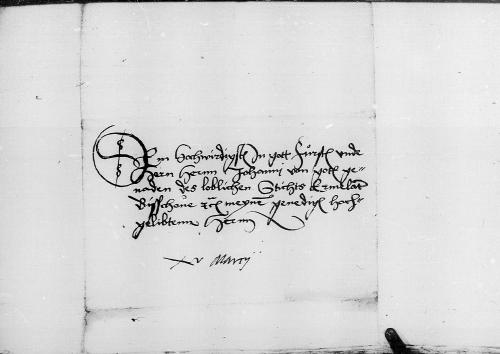 Dem Hochwirdigsten In got Fursten unde
Hern Hernn Johanni von gots ge-
naden des loblichen Stichts Ermelant
Bisschave etc meynem genedigen hoch
gelibtenn Hernn
xv Marcij